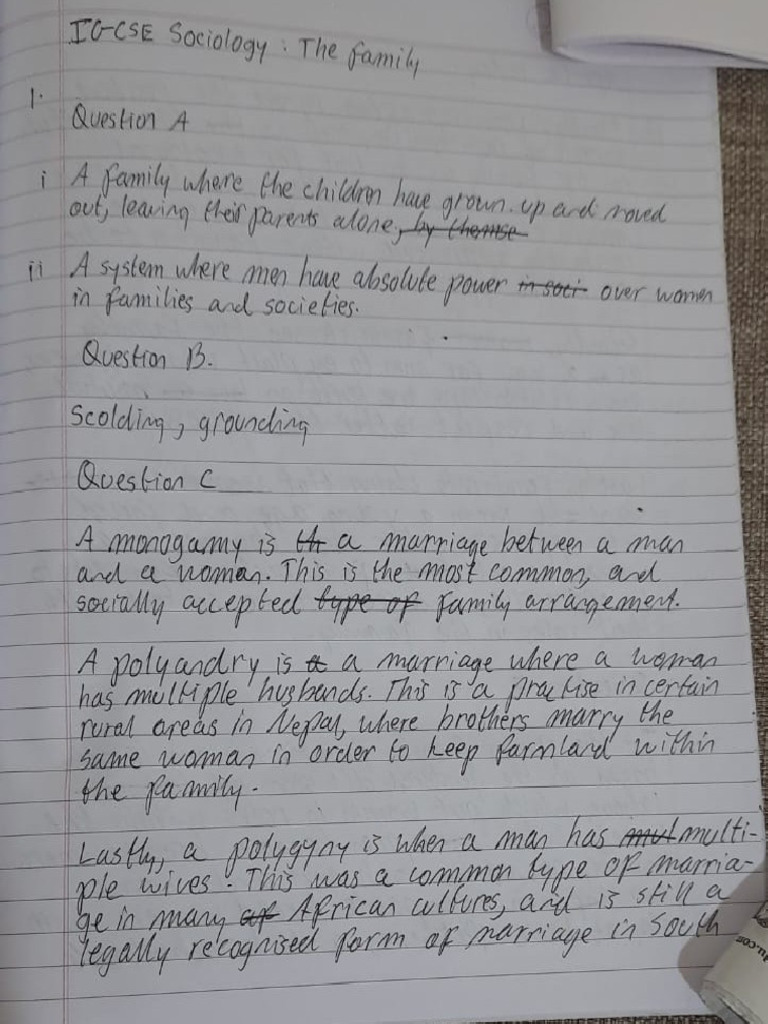 IGCSE Sociology : The family
1.
Question A
i A family where the children have grown up and moved
out, leaving their parents alone, by themse
ii A system where men have absolute power in soci over women
in families and societies.
Question B.
Scolding, grounding
Question C
A monogamy is th a marriage between a man
and a woman. This is the most common, and
socially accepted type of family arrangement.
A polyandry is a a marriage where a woman
has multiple husbands. This is a practise in certain
rural areas in Nepal, where brothers marry the
same woman in order to keep farmland within
the family.
Lastly, a polygyny is when a man has mut multi-
ple wives. This was a common type of marria-
ge in many af African cultures, and is still a
legally recognised form of marriage in South